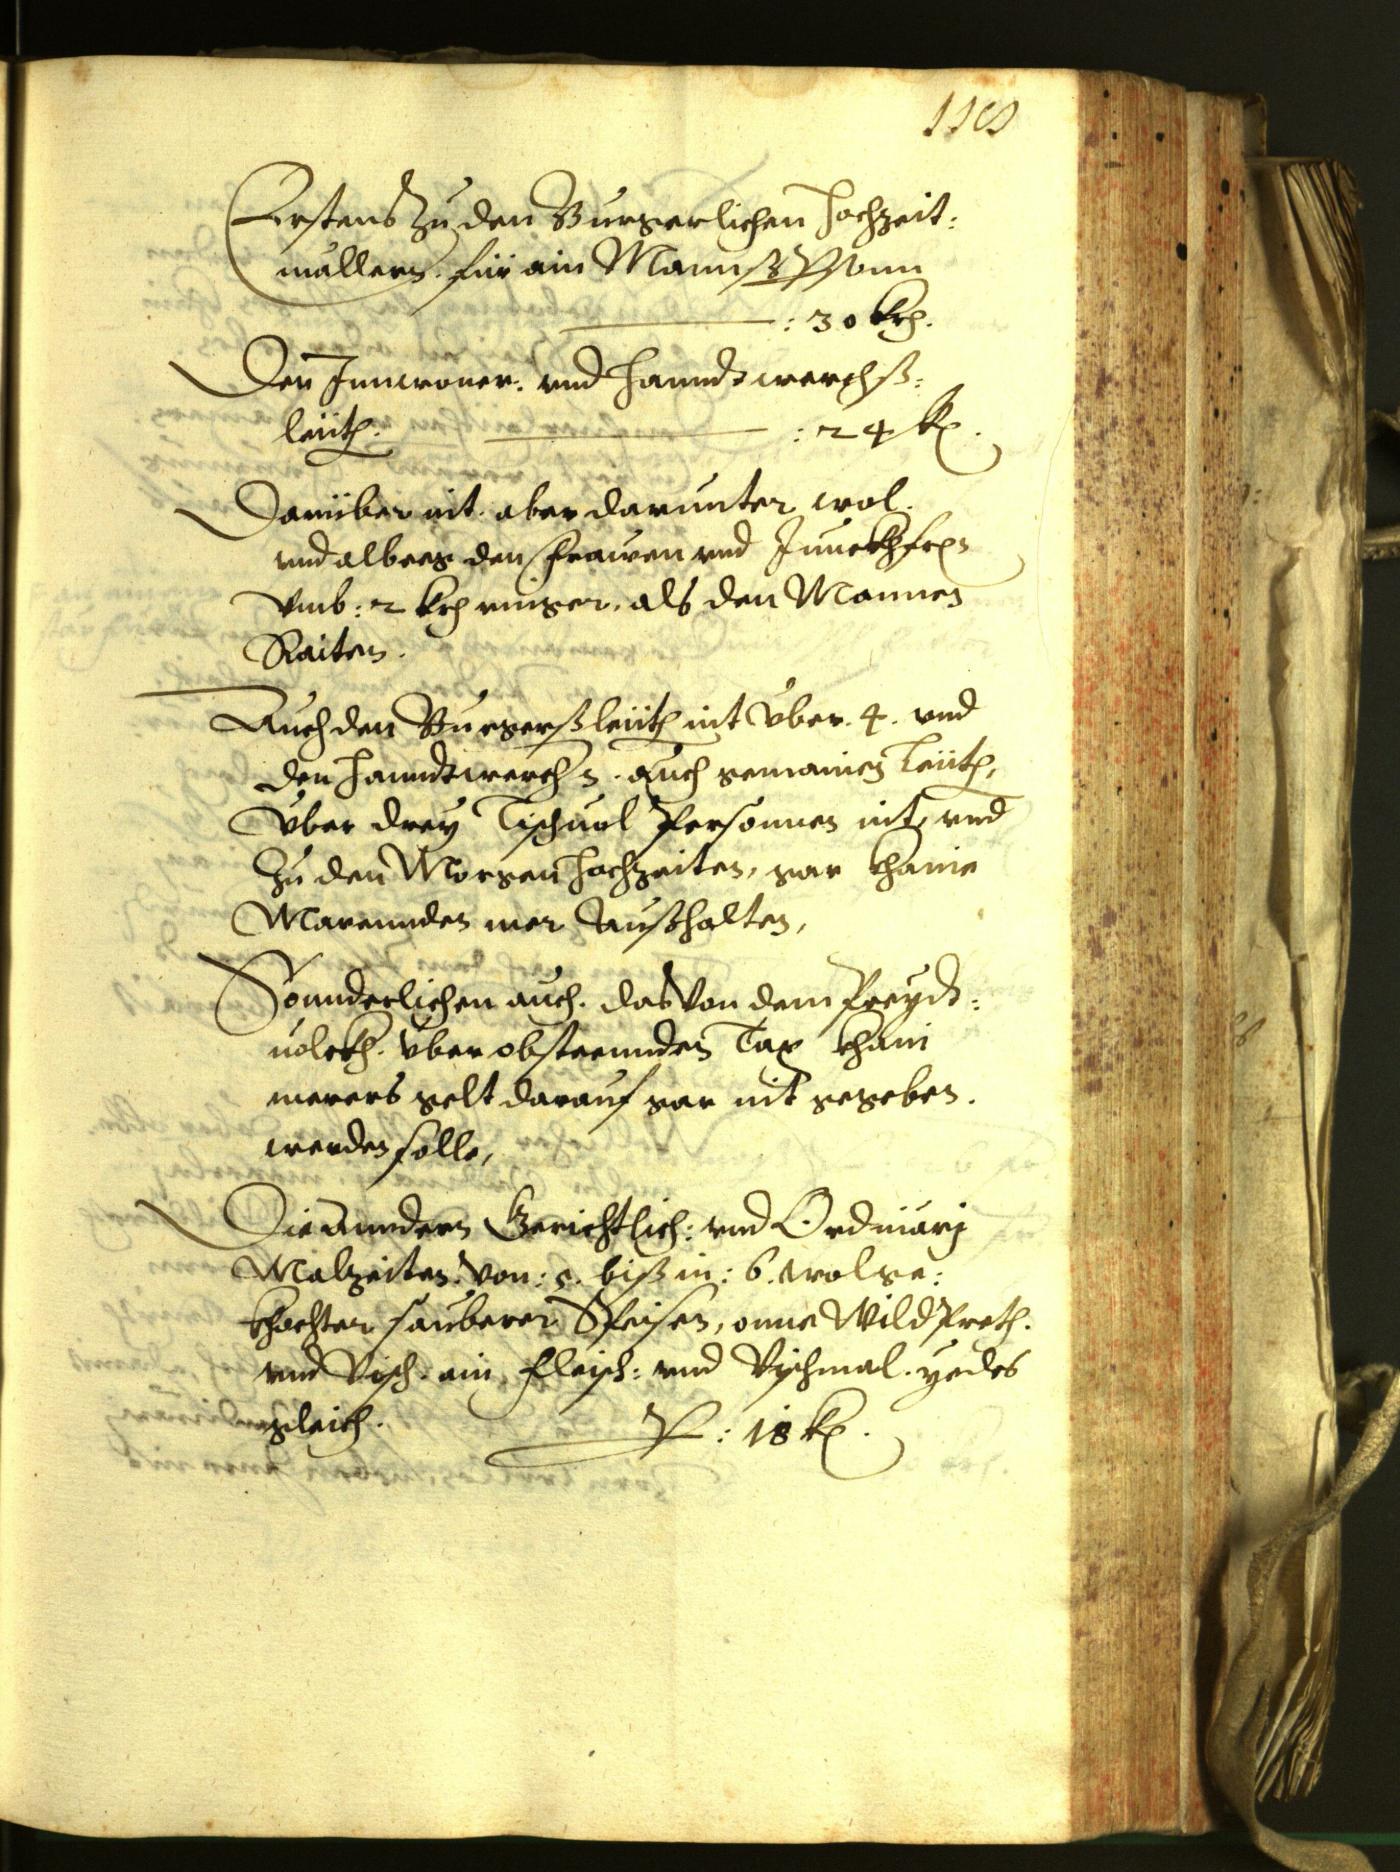 Erstens Zu den Burgerlichen Hochzeit:
mallern. für ain Manns Pson
: 30 kr.
Den Innwoner. vnd Hanndtwerchß:
leüth. : 24 kr.
Darüber nit. aber darunter wol.
vnd albeeg den Frawen vnd Junckhfrn
vmb: 2 kr ringer, als den Mannen
Raiten.
Auch den Burgersleüth nit Vber. 4. vnd
den Hanndtwerchs. Auch gemainen Leüth,
Vber drey Tischuol Personnen nit, vnd
Zu den Morgen Hochzeiten, gar khaine
Marennden mer Ausshalten,
Sonnderlichen auch. das Von dem Preydt:
uolckh. Vber obsteennden Tax khain
merers gelt darauf gar nit gegeben.
werden solle,
Die Anndern Gerichtlich: vnd Ordinarj
Malzeiten. Von: 5. biß in: 6. wolge:
khochter sauberer Speisen, onne Wildpreth.
vnd Visch. ain Fleisch: vnd Vischmal. yedes
gleich. P: 18 kr.